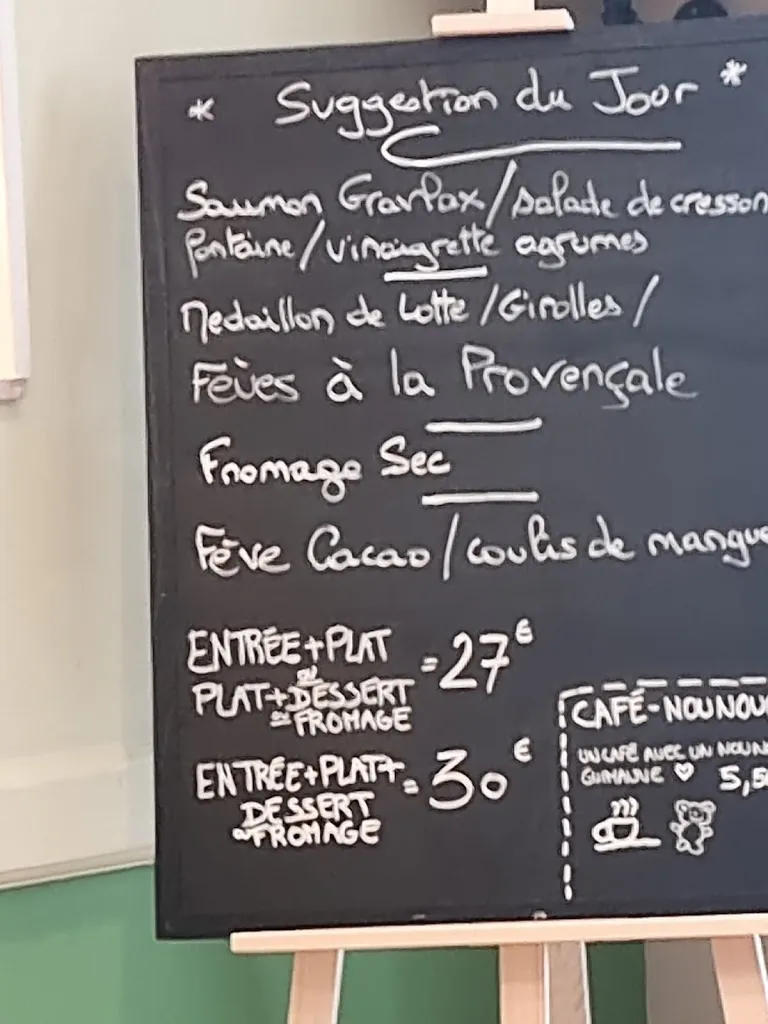 * Suggestion du Jour *
Saumon Gravlax / salade de cresson
fontaine / vinaigrette agrumes
Medaillon de Lotte / Girolles /
Fèves à la Provençale
Fromage Sec
Fève Cacao / coulis de mangue
ENTRÉE + PLAT
ou
PLAT + DESSERT
ou FROMAGE
= 27€
ENTRÉE + PLAT +
DESSERT
ou FROMAGE
= 30€
CAFÉ - NOUNOU
UN CAFÉ AVEC UN NOUN
GUIMAUVE ♡ 5,5